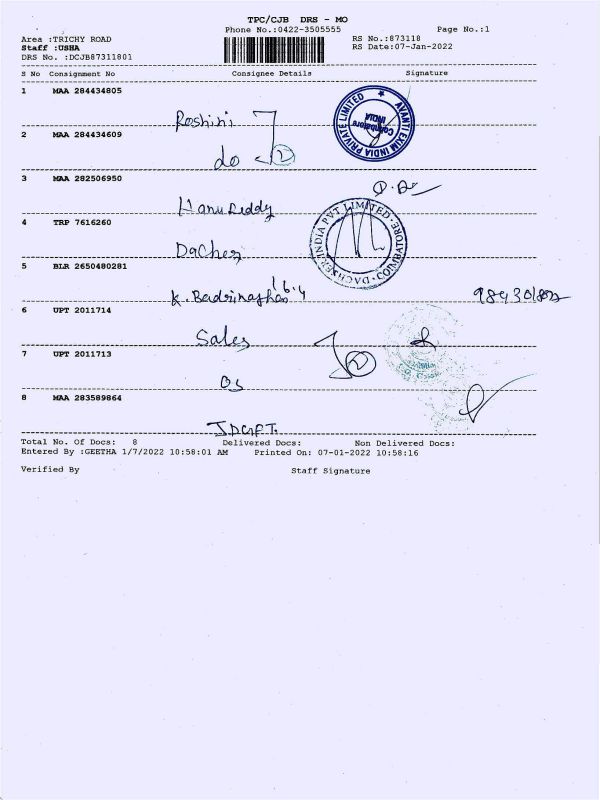 TPC/CJB DRS - MO
Phone No.:0422-3505555
Page No.:1
Area :TRICHY ROAD
RS No.:873118
Staff :USHA
RS Date:07-Jan-2022
DRS No. :DCJB87311801
S No Consignment No Consignee Details Signature
1 MAA 284434805
Roshini
AVANTI EXIM INDIA PRIVATE LIMITED
Coimbatore
INDIA
2 MAA 284434609
do 2
3 MAA 282506950
Hanu Reddy
4 TRP 7616260
Dacher
DACHSER INDIA PVT LIMITED COIMBATORE
5 BLR 2650480281
K. Badrinathan
6 UPT 2011714
Sales
7 UPT 2011713
2
8 MAA 283589864
Total No. Of Docs: 8 Delivered Docs: Non Delivered Docs:
Entered By :GEETHA 1/7/2022 10:58:01 AM Printed On: 07-01-2022 10:58:16
Verified By Staff Signature